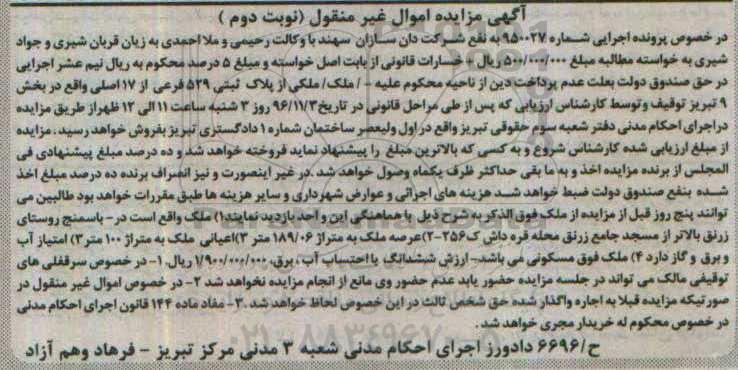 آگهی مزایده اموال غیر منقول (نوبت دوم )
در خصوص پرونده اجرایی شماره ۹۵۰۰۲۷ به نفع شرکت دان سازان سهند با وکالت رحیمی و ملا احمدی به زیان قربان شیری و جواد
شیری به خواسته مطالبه مبلغ ۵۰۰/۰۰۰/۰۰۰ ریال + خسارات قانونی از بابت اصل خواسته و مبلغ ۵ درصد محکوم به ریال نیم عشر اجرایی
در حق صندوق دولت بعلت عدم پرداخت دین از ناحیه محکوم علیه - / ملک/ ملکی از پلاک ثبتی ۵۲۹ فرعی از ۱۷ اصلی واقع در بخش
۹ تبریز توقیف و توسط کارشناس ارزیابی که پس از طی مراحل قانونی در تاریخ ۹۶/۱۱/۳ روز ۳ شنبه ساعت ۱۱ الی ۱۲ ظهر از طریق مزایده
در اجرای احکام مدنی دفتر شعبه سوم حقوقی تبریز واقع در اول ولیعصر ساختمان شماره ۱ دادگستری تبریز بفروش خواهد رسید. مزایده
از مبلغ ارزیابی شده کارشناس شروع و به کسی که بالاترین مبلغ را پیشنهاد نماید فروخته خواهد شد و ده درصد مبلغ پیشنهادی فی
المجلس از برنده مزایده اخذ و به ما بقی حداکثر ظرف یکماه وصول خواهد شد .در غیر اینصورت و نیز انصراف برنده ده درصد مبلغ اخذ
شده بنفع صندوق دولت ضبط خواهد شد هزینه های اجرائی و عوارض شهرداری و سایر هزینه ها طبق مقررات خواهد بود طالبین می
توانند پنج روز قبل از مزایده از ملک فوق الذکر به شرح ذیل با هماهنگی این واحد بازدید نمایند۱) ملک واقع است در- باسمنج روستای
زرنق بالاتر از مسجد جامع زرنق محله قره داش ک۲۵۶-۲)عرصه ملک به متراژ ۱۸۹/۰۶ متر ۳)اعیانی ملک به متراژ ۱۰۰ متر ۳) امتیاز آب
و برق و گاز دارد ۴) ملک فوق مسکونی می باشد.- ارزش ششدانگ با احتساب آب ، برق، ۱/۹۰۰/۰۰۰/۰۰۰ ریال. ۱- در خصوص سرقفلی های
توقیفی مالک می تواند در جلسه مزایده حضور یابد عدم حضور وی مانع از انجام مزایده نخواهد شد ۲- در خصوص اموال غیر منقول در
صورتیکه مزایده قبلا به اجاره واگذار شده حق شخص ثالث در این خصوص لحاظ خواهد شد .۳- مفاد ماده ۱۴۴ قانون اجرای احکام مدنی
در خصوص محکوم له خریدار مجری خواهد شد .
ح/۶۶۹۶ دادورز اجرای احکام مدنی شعبه ۳ مدنی مرکز تبریز - فرهاد وهم آزاد